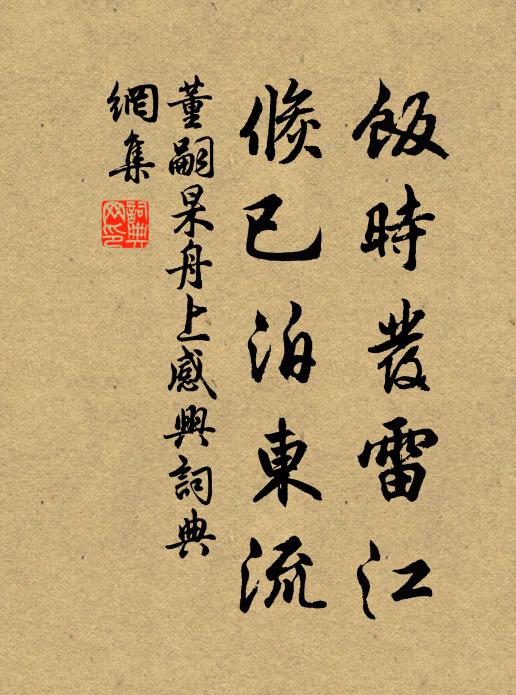 飯時發雷江
倏已泊東流
董嗣杲舟上感興詞典
網集
詞典
網印